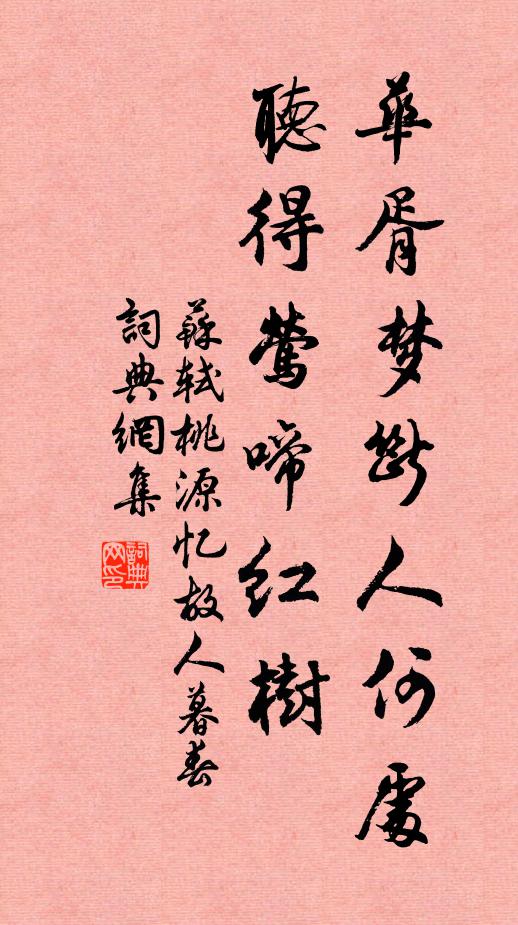 華胥梦斷人何處
聽得鶯啼红樹
蘇轼桃源忆故人暮春
詞典網集
詞典网印